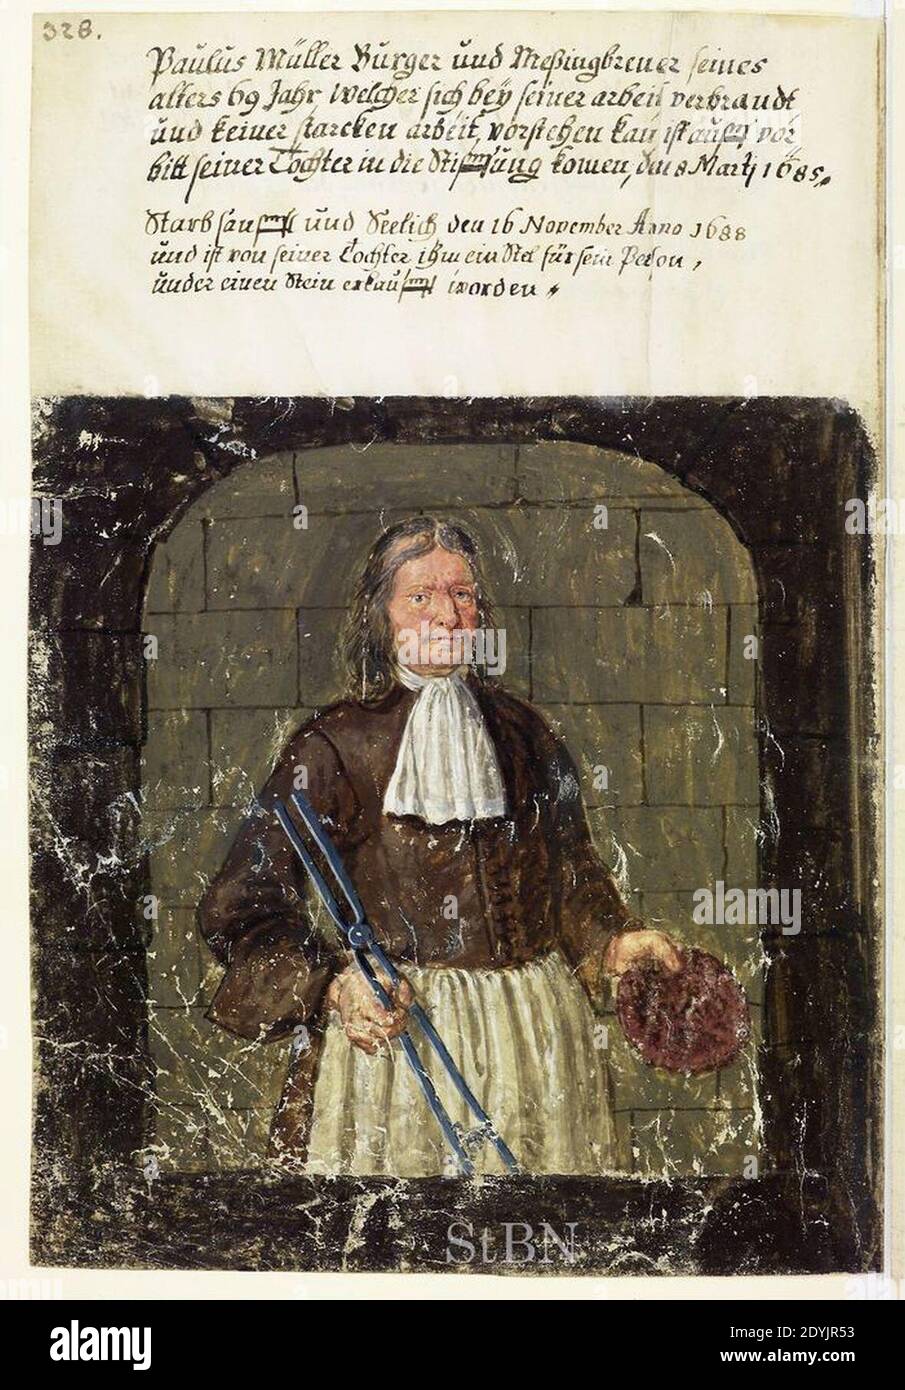 328.
Paulus Müller Burger und Meßingbrener seines
alters 69 Jahr, Welcher sich bey seiner arbeit verbrandt
und keiner starcken arbeit, vorstehen kan ist auff vor
bitt seiner Tochter in die Stifftung komen, den 8 Martj 1685.
Starb sanfft und Seelich den 16 November Anno 1688
und ist von seiner Tochter ihm ein Stel für sein Person,
under einen Stein erkaufft worden.
StBN
alamy
alamy
Image ID: 2DYJR53
www.alamy.com